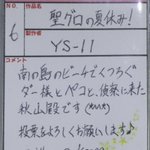 No.
6
作品名
聖グロの夏休み!
製作者
YS-11
コメント
南の島のビーチでくつろぐ
ダー様とペコと、偵察に来た
秋山殿です
投票よろしくお願いします♪